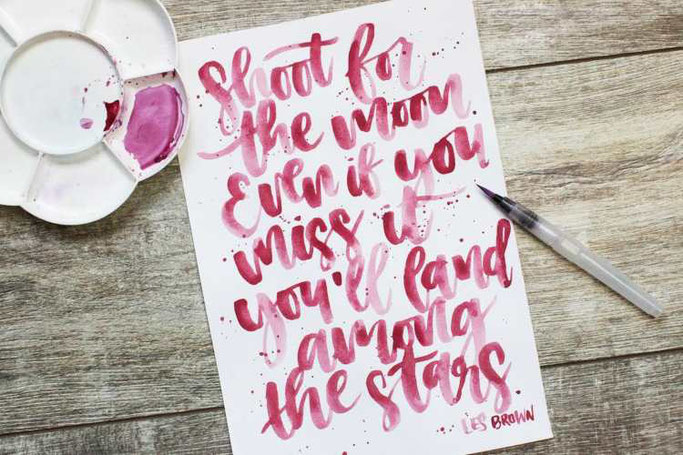 Shoot for
the moon
Even if you
miss it
you'll land
among
the stars.
LES BROWN